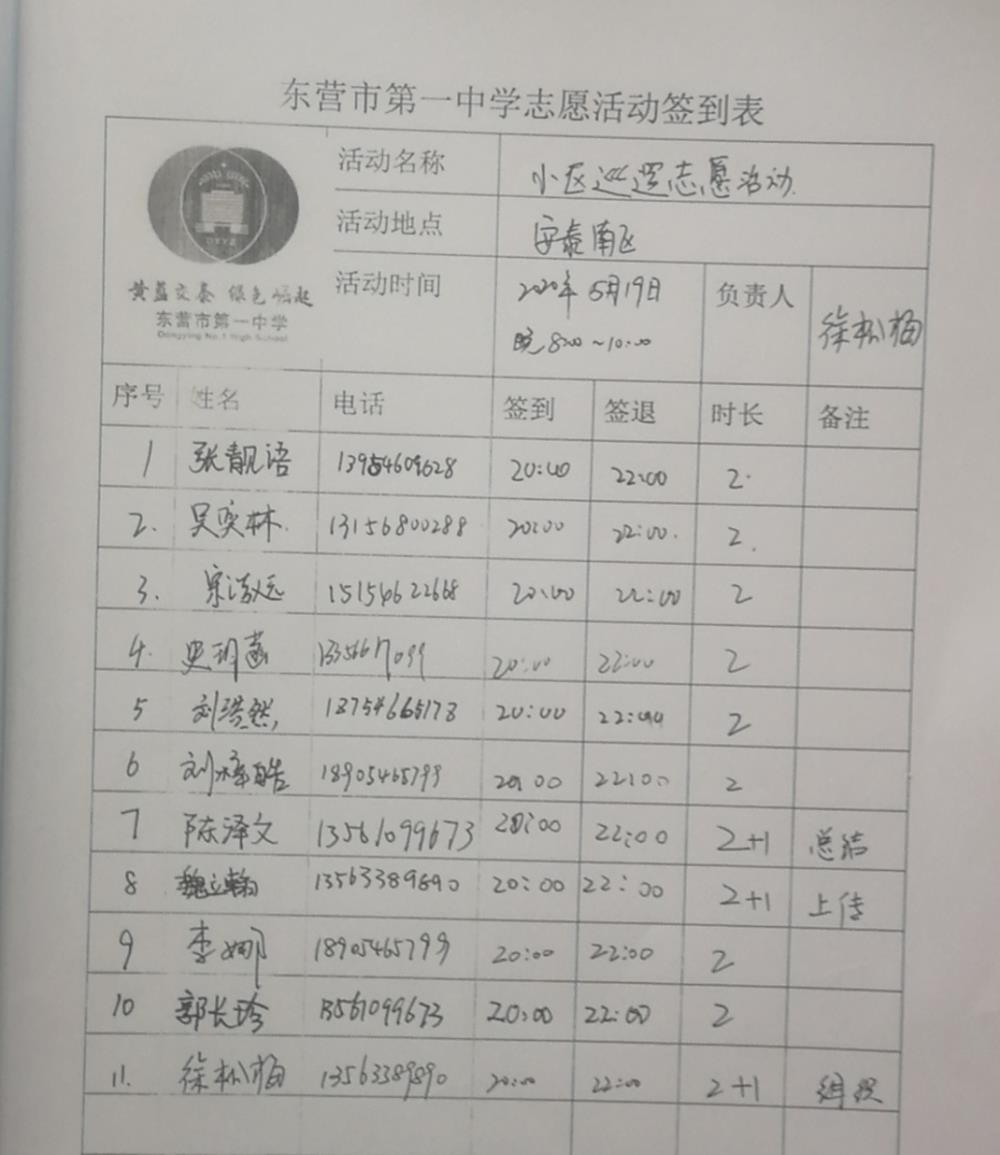 东营市第一中学志愿活动签到表
活动名称 小区巡逻志愿活动
活动地点 安泰南区
黄蓝交泰 绿色崛起
东营市第一中学
Dongying No.1 High School
活动时间 2020年5月19日 负责人 徐松梅
晚8:00~10:00
序号 姓名 电话 签到 签退 时长 备注
1 张靓语 13954609628 20:00 22:00 2
2. 吴奕林 13156800288 20:00 22:00 2
3. 宋浩远 15154622668 20:00 22:00 2
4. 史玥菡 20:00 22:00 2
5 刘浩然 18754665178 20:00 22:00 2
6 刘梓皓 18905465799 20:00 22:00 2
7 陈泽文 13561099673 20:00 22:00 2+1 总结
8 13563389890 20:00 22:00 2+1 上传
9 李娜 18905465799 20:00 22:00 2
10 郭长玲 13561099673 20:00 22:00 2
11. 徐松梅 13563389890 20:00 22:00 2+1 组织